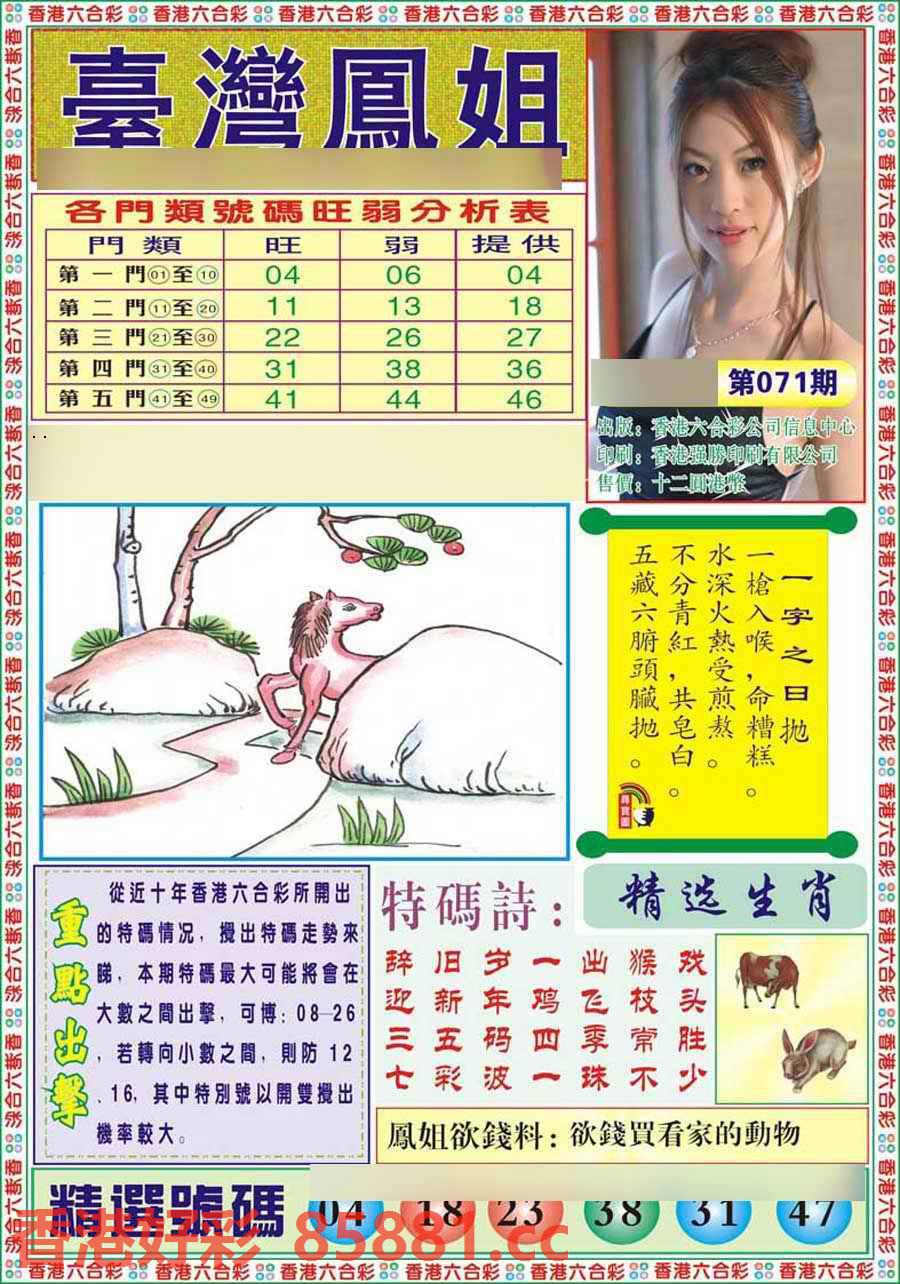 香港六合彩 香港六合彩 香港六合彩 香港六合彩 香港六合彩 香港六合彩 香港六合彩
臺灣鳳姐
各門類號碼旺弱分析表
門類 旺 弱 提供
第一門01至10 04 06 04
第二門11至20 11 13 18
第三門21至30 22 26 27
第四門31至40 31 38 36
第五門41至49 41 44 46
第071期
出版：香港六合彩公司信息中心
印刷：香港强勝印刷有限公司
售價：十二圓港幣
一字之曰抛
一槍入喉，命糟糕。
水深火熱受煎熬。
不分青紅，共皂白。
五藏六腑頭臟抛。
尋寶圖
重點出擊
從近十年香港六合彩所開出
的特碼情况，攪出特碼走勢來
睇，本期特碼最大可能將會在
大數之間出擊，可博：08—26
，若轉向小數之間，則防12
、16，其中特別號以開雙攪出
機率較大。
特碼詩：
辞旧岁一出猴戏
迎新年鸡飞枝头
三五码四季常胜
七彩波一珠不少
精选生肖
鳳姐欲錢料：欲錢買看家的動物
精選號碼 04 18 23 38 31 47
香港好彩 85881.cc
香港六合彩 香港六合彩 香港六合彩 香港六合彩 香港六合彩 香港六合彩 香港六合彩